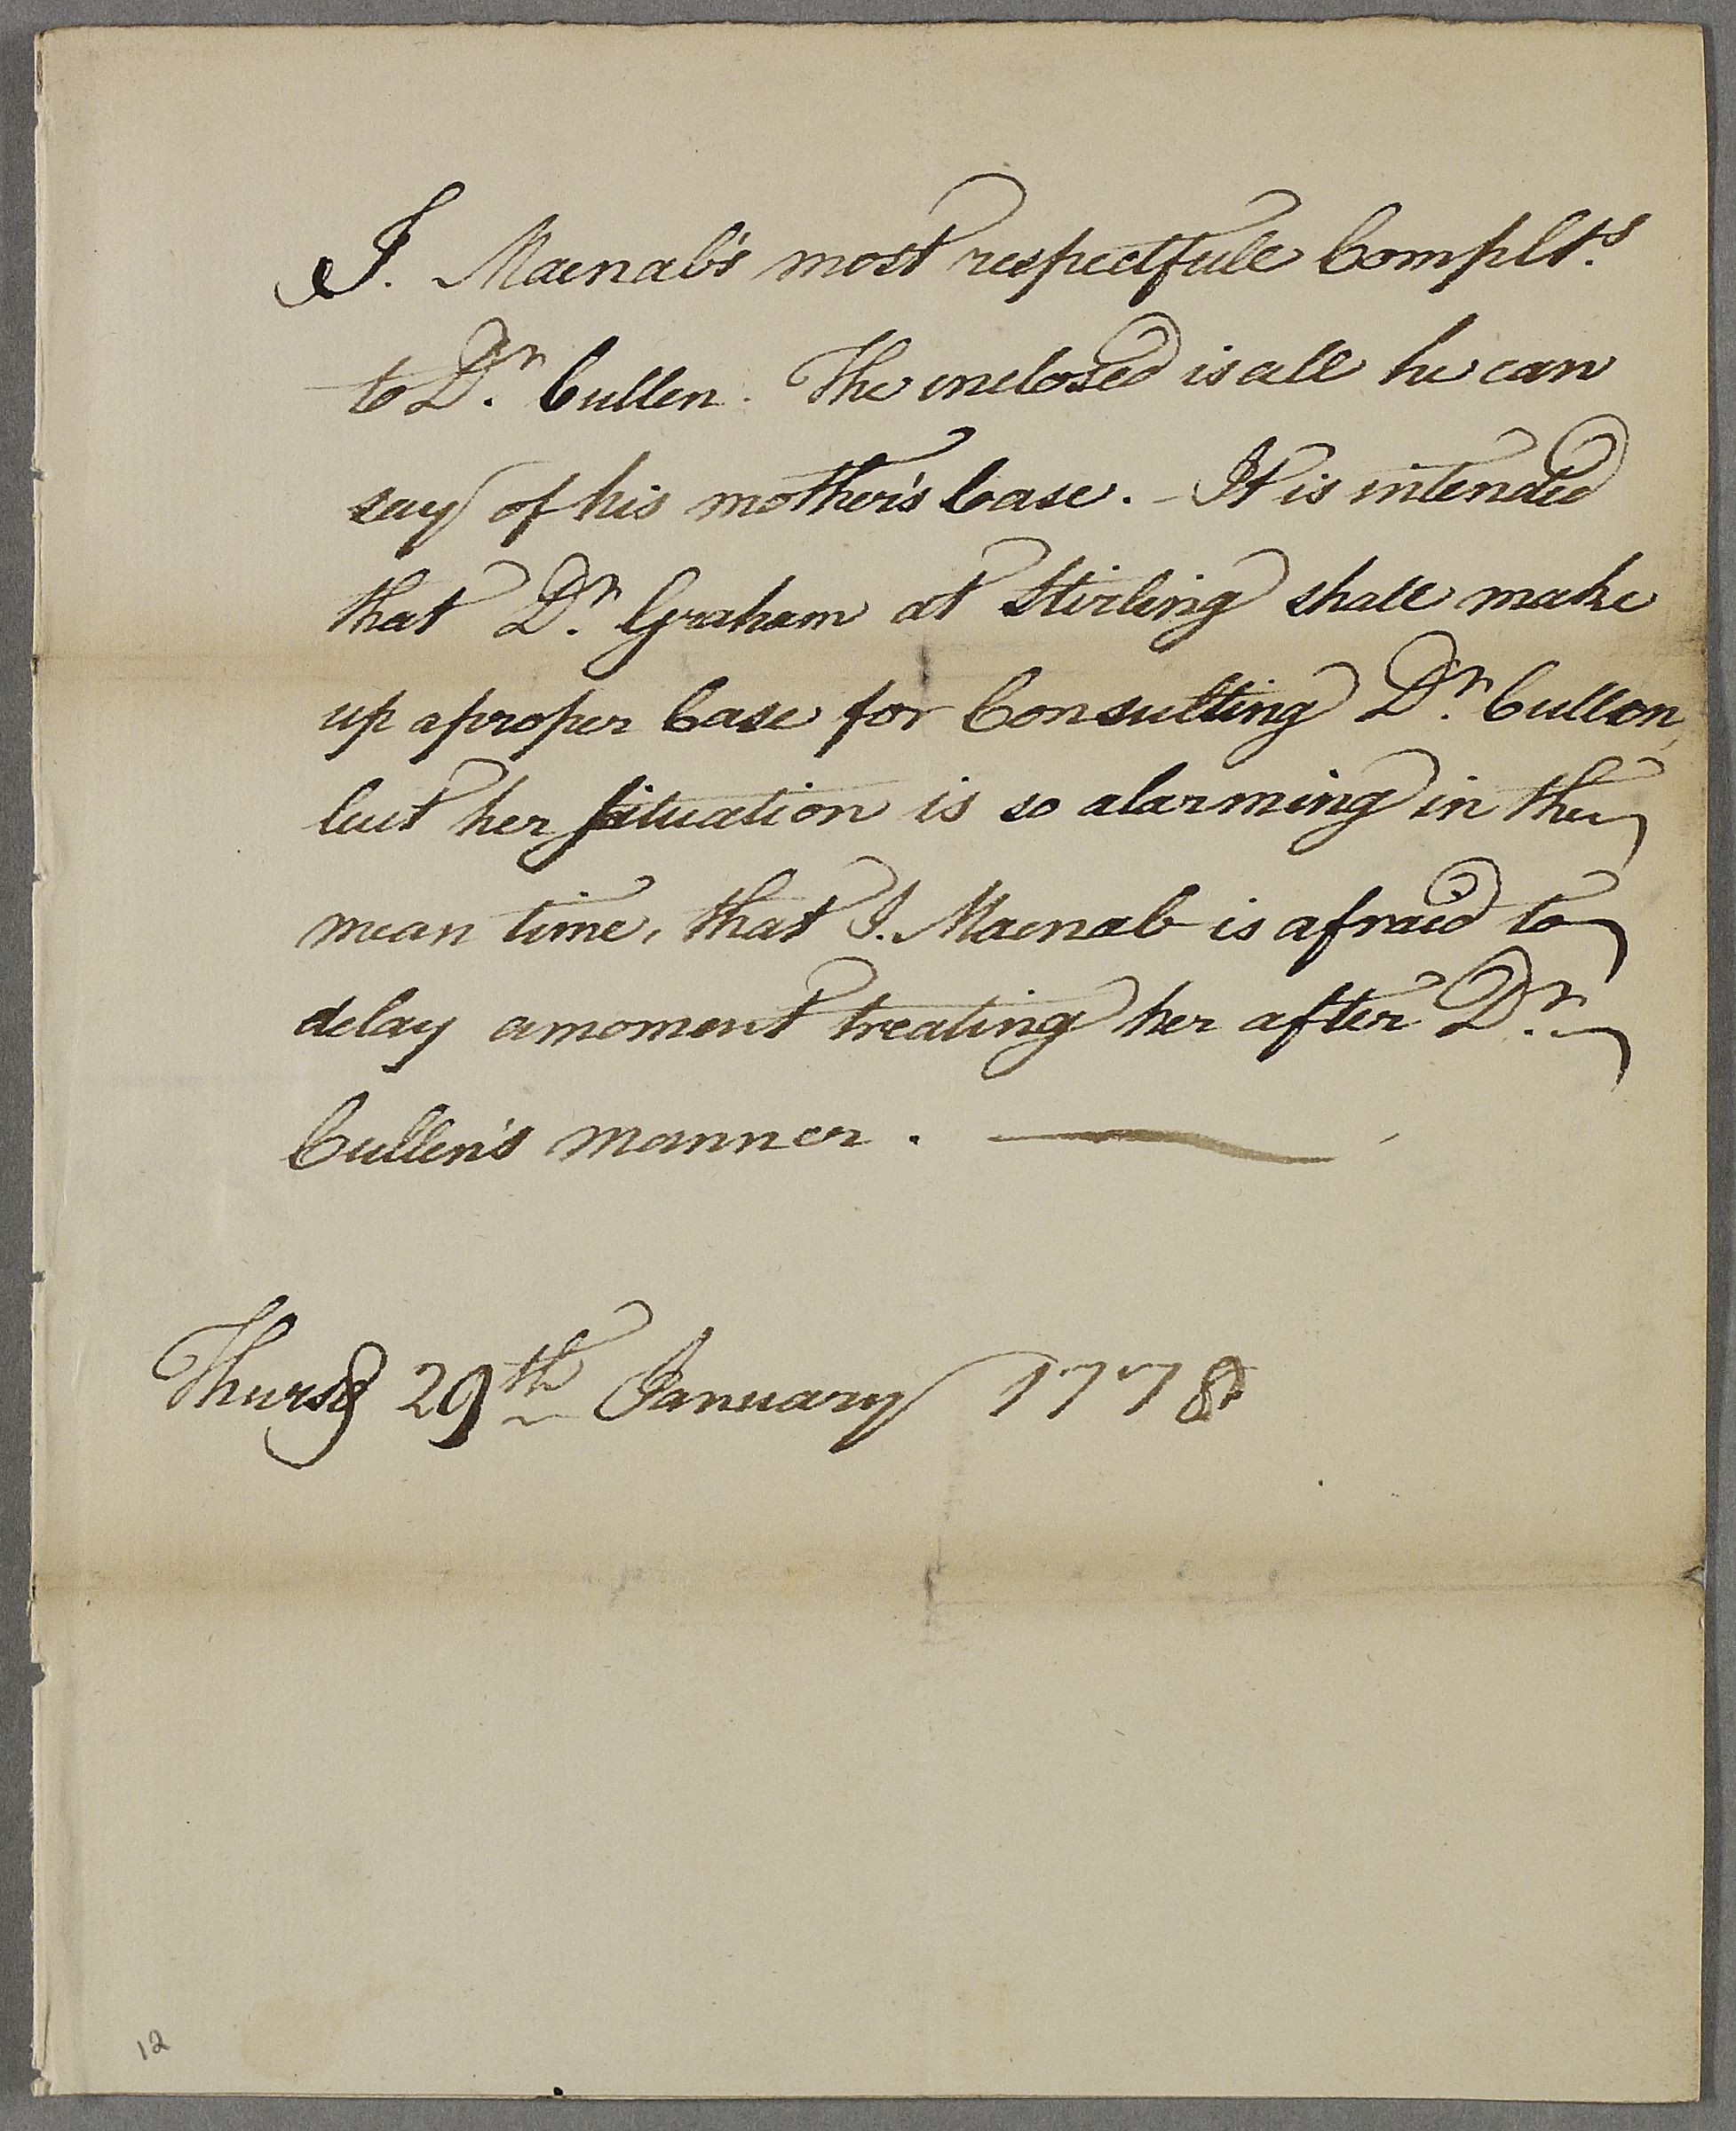 J. Macnab's most respectfull Complts.
to Dr. Cullen. The inclosed is all he can
say of his mother's Case. - It is intended
that Dr. Graham at Stirling shall make
up a proper Case for Consulting Dr. Cullen,
but her situation is so alarming in the
mean time, that J. Macnab is afraid to
delay a moment treating her after Dr.
Cullen's manner.
Thursd 29th January 1778
12